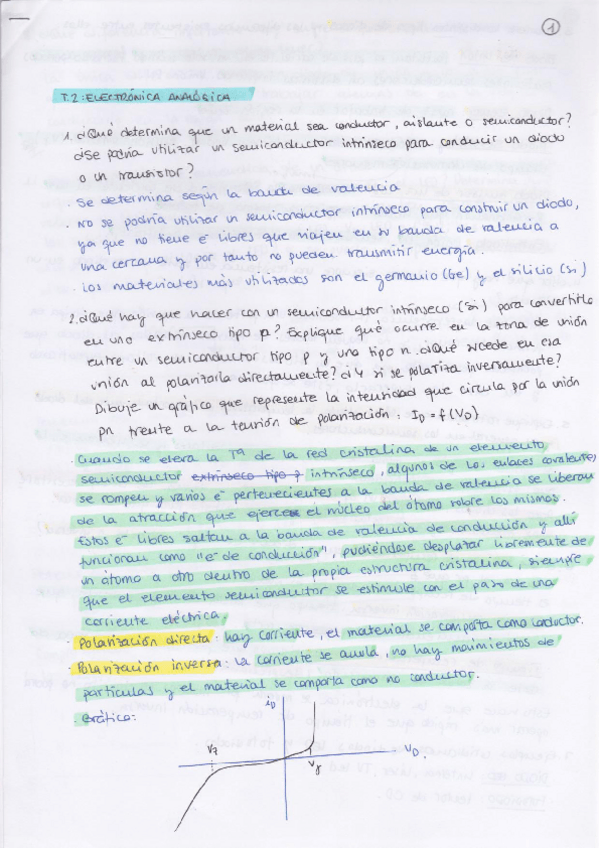 1
T.2: ELECTRÓNICA ANALÓGICA
1. ¿Qué determina que un material sea conductor, aislante o semiconductor?
¿Se podría utilizar un semiconductor intrínseco para conducir un diodo
o un transistor?
· Se determina según la banda de valencia
· No se podría utilizar un semiconductor intrínseco para construir un diodo,
ya que no tiene e⁻ libres que viajen en su banda de valencia a
una cercana y por tanto no pueden transmitir energía.
· Los materiales más utilizados son el germanio (Ge) y el silicio (Si)
2. ¿Qué hay que hacer con un semiconductor intrínseco (Si) para convertirlo
en uno extrínseco tipo p? Explique qué ocurre en la zona de unión
entre un semiconductor tipo p y uno tipo n. ¿Qué sucede en esa
unión al polarizarla directamente? ¿Y si se polariza inversamente?
Dibuje un gráfico que represente la intensidad que circula por la unión
pn frente a la tensión de polarización: I_D = f(V_D)
· Cuando se eleva la Tª de la red cristalina de un elemento
semiconductor extrínseco tipo p intrínseco, algunos de los enlaces covalentes
se rompen y varios e⁻ pertenecientes a la banda de valencia se liberan
de la atracción que ejerce el núcleo del átomo sobre los mismos.
Estos e⁻ libres saltan a la banda de valencia de conducción y allí
funcionan como "e⁻ de conducción", pudiéndose desplazar libremente de
un átomo a otro dentro de la propia estructura cristalina, siempre
que el elemento semiconductor se estimule con el paso de una
corriente eléctrica.
· Polarización directa: hay corriente, el material se comporta como conductor.
· Polarización inversa: la corriente se anula, no hay movimientos de
partículas y el material se comporta como no conductor.
· Gráfico:
i_D
V_D
V_γ